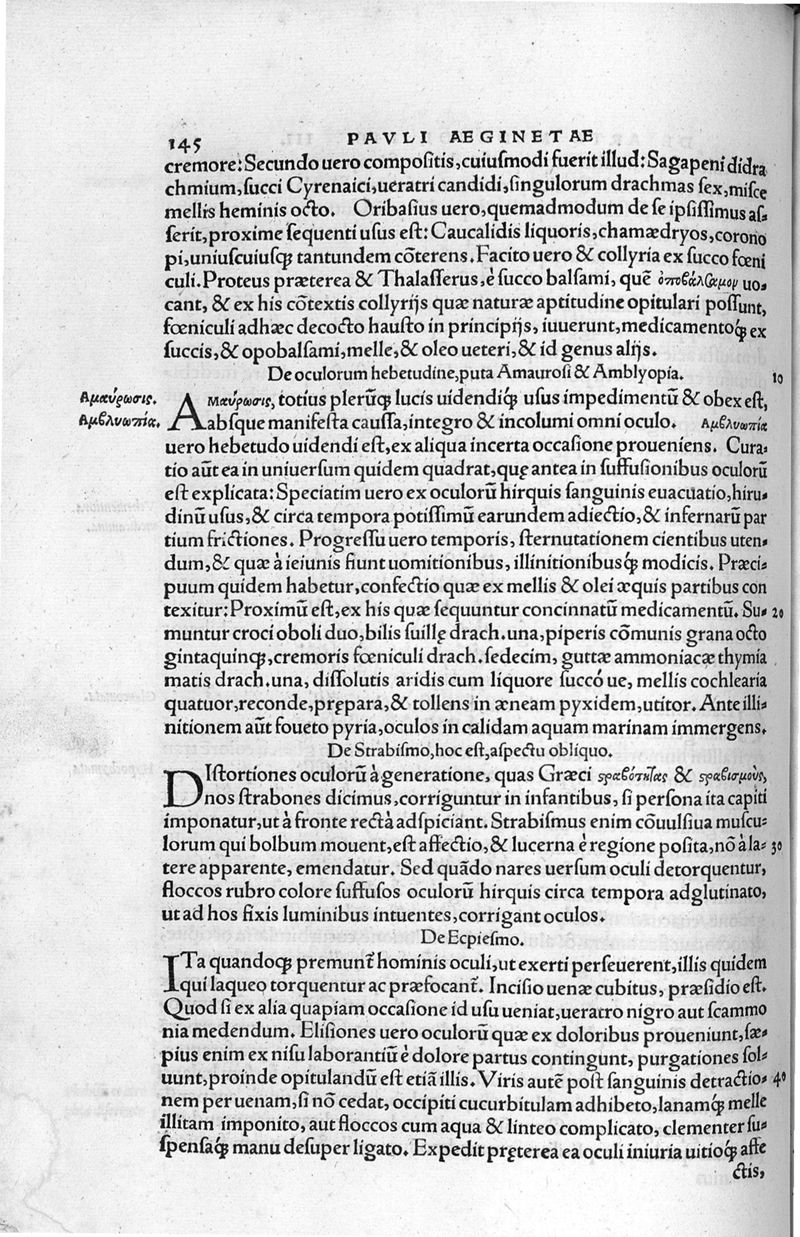 145 PAVLI AEGINETAE
cremore: Secundo uero compositis, cuiusmodi fuerit illud: Sagapeni didra
chmium, succi Cyrenaici, ueratri candidi, singulorum drachmas sex, misce
mellis heminis octo. Oribasius uero, quemadmodum de se ipsissimus as-
serit, proxime sequenti usus est: Caucalidis liquoris, chamædryos, corono
pi, uniuscuiusq; tantundem cōterens. Facito uero & collyria ex succo fœni
culi. Proteus præterea & Thalasserus, è succo balsami, quē ὀποβάλσαμον uo-
cant, & ex his cōtextis collyrijs quæ naturæ aptitudine opitulari possunt,
fœniculi adhæc decocto hausto in principijs, iuuerunt, medicamentoq́; ex
succis, & opobalsami, melle, & oleo ueteri, & id genus alijs.
De oculorum hebetudine, puta Amaurosi & Amblyopia. 10
Αμαύρωσις. Αμαύρωσις, totius plerūq; lucis uidendiq́; usus impedimentū & obex est,
Αμβλυωπία. absque manifesta caussa, integro & incolumi omni oculo. Αμβλυωπία
uero hebetudo uidendi est, ex aliqua incerta occasione proueniens. Cura-
tio aūt ea in uniuersum quidem quadrat, quę antea in suffusionibus oculorū
est explicata: Speciatim uero ex oculorū hirquis sanguinis euacuatio, hiru-
dinū usus, & circa tempora potissimū earundem adiectio, & infernarū par
tium frictiones. Progressu uero temporis, sternutationem cientibus uten-
dum, & quæ à ieiunis fiunt uomitionibus, illinitionibusq́; modicis. Præci-
puum quidem habetur, confectio quæ ex mellis & olei æquis partibus con
texitur: Proximū est, ex his quæ sequuntur concinnatū medicamentū. Su- 20
muntur croci oboli duo, bilis suillę drach. una, piperis cōmunis grana octo
gintaquinq;, cremoris fœniculi drach. sedecim, guttæ ammoniacæ thymia
matis drach. una, dissolutis aridis cum liquore succó ue, mellis cochlearia
quatuor, reconde, prępara, & tollens in æneam pyxidem, utitor. Ante illi-
nitionem aūt foueto pyria, oculos in calidam aquam marinam immergens.
De Strabismo, hoc est, aspectu obliquo.
DIstortiones oculorū à generatione, quas Græci ςραβότητας & ςραβισμοὺς,
nos strabones dicimus, corriguntur in infantibus, si persona ita capiti
imponatur, ut à fronte rectà adspiciant. Strabismus enim cōuulsiua muscu-
lorum qui bolbum mouent, est affectio, & lucerna è regione posita, nō à la- 30
tere apparente, emendatur. Sed quādo nares uersum oculi detorquentur,
floccos rubro colore suffusos oculorū hirquis circa tempora adglutinato,
ut ad hos fixis luminibus intuentes, corrigant oculos.
De Ecpiesmo.
ITa quandoq; premunt̄ hominis oculi, ut exerti perseuerent, illis quidem
qui laqueo torquentur ac præfocant̄. Incisio uenæ cubitus, præsidio est.
Quod si ex alia quapiam occasione id usu ueniat, ueratro nigro aut scammo
nia medendum. Elisiones uero oculorū quæ ex doloribus proueniunt, sæ-
pius enim ex nisu laborantiū è dolore partus contingunt, purgationes sol-
uunt, proinde opitulandū est etiā illis. Viris autē post sanguinis detractio- 40
nem per uenam, si nō cedat, occipiti cucurbitulam adhibeto, lanamq́; melle
illitam imponito, aut floccos cum aqua & linteo complicato, clementer su-
spensaq́; manu desuper ligato. Expedit pręterea ea oculi iniuria uitioq́; affe
ctis,